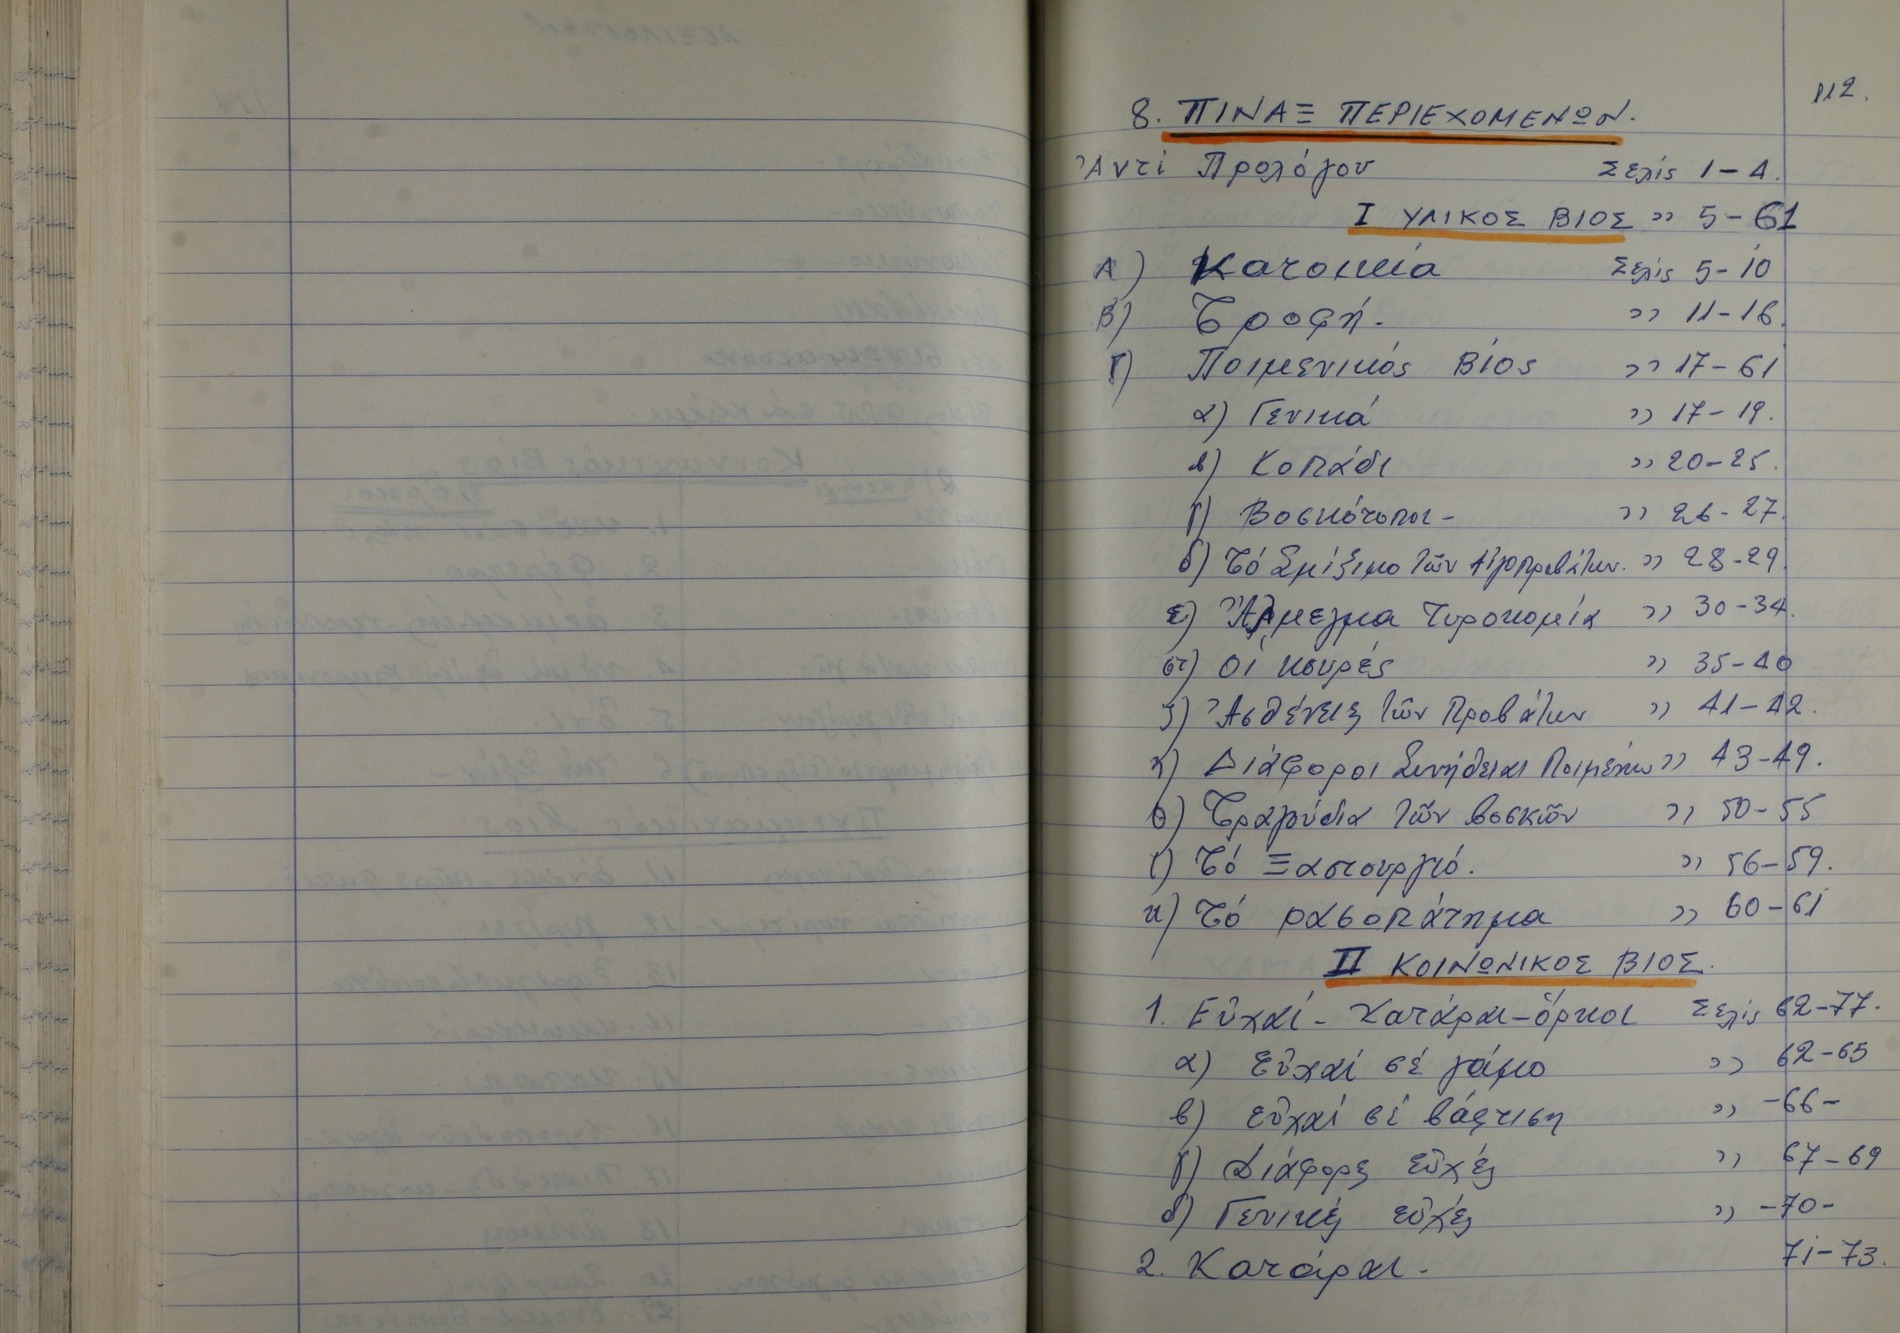 112.
8. ΠΙΝΑΞ ΠΕΡΙΕΧΟΜΕΝΩΝ.
Ἀντί Προλόγου Σελίς 1-4.
I ΥΛΙΚΟΣ ΒΙΟΣ » 5-61
Α) Κατοικία Σελίς 5-10
Β) Τροφή. » 11-16.
Γ) Ποιμενικός Βίος » 17-61
α) Γενικά » 17-19.
β) Κοπάδι » 20-25.
γ) Βοσκότοποι - » 26-27.
δ) Τό Σμίξιμο τῶν Αἰγοπροβάτων. » 28-29.
ε) Ἄρμεγμα Τυροκομία » 30-34.
στ) Οἱ κουρές » 35-40
ζ) Ἀσθένειες τῶν Προβάτων » 41-42.
η) Διάφοροι Συνήθειαι Ποιμένων » 43-49.
θ) Τραγούδια τῶν βοσκῶν » 50-55
ι) Τό Ξαστουργιό. » 56-59.
κ) Τό ρασοπάτημα » 60-61
II ΚΟΙΝΩΝΙΚΟΣ ΒΙΟΣ.
1. Εὐχαί - Κατάραι - ὅρκοι Σελίς 62-77.
α) Εὐχαί σέ γάμο » 62-65
β) εὐχαί σέ βάφτιση » -66-
γ) Διάφορες εὐχές » 67-69
δ) Γενικές εὐχές » -70-
2. Κατάραι. 71-73.